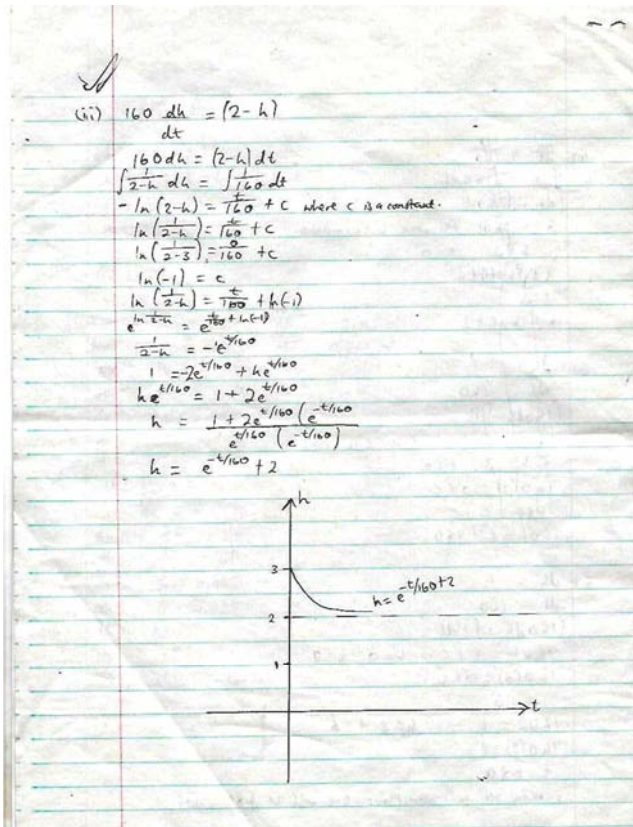 (iii) 160 dh/dt = (2-h)
160dh = (2-h)dt
∫ 1/(2-h) dh = ∫ 1/160 dt
- ln(2-h) = t/160 + c where c is a constant.
ln(1/(2-h)) = t/160 + c
ln(1/(2-3)) = 0/160 + c
ln(-1) = c
ln(1/(2-h)) = t/160 + ln(-1)
e^(ln 1/(2-h)) = e^(t/160 + ln(-1))
1/(2-h) = -e^(t/160)
1 = -2e^(t/160) + he^(t/160)
he^(t/160) = 1 + 2e^(t/160)
h = 1 + 2e^(t/160) (e^(-t/160) / e^(t/160) (e^(-t/160))
h = e^(-t/160) + 2
h
3
h = e^(-t/160) + 2
2
1
t